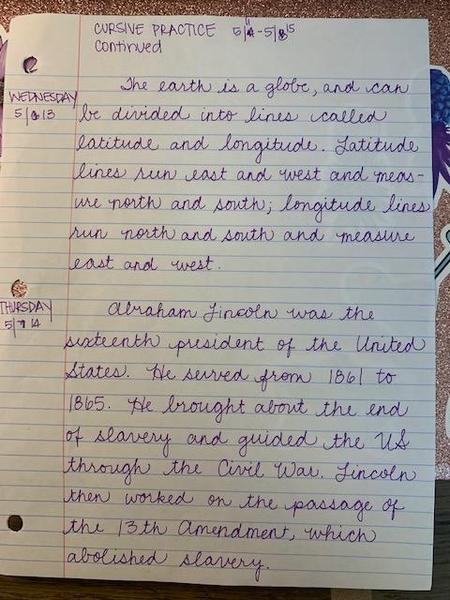 CURSIVE PRACTICE 5/11-5/15
Continued
The earth is a globe, and can
WEDNESDAY be divided into lines called
5/13 latitude and longitude. Latitude
lines run east and west and meas-
ure north and south; longitude lines
run north and south and measure
east and west.
THURSDAY Abraham Lincoln was the
5/14 sixteenth president of the United
States. He served from 1861 to
1865. He brought about the end
of slavery and guided the US
through the Civil War. Lincoln
then worked on the passage of
the 13th Amendment, which
abolished slavery.